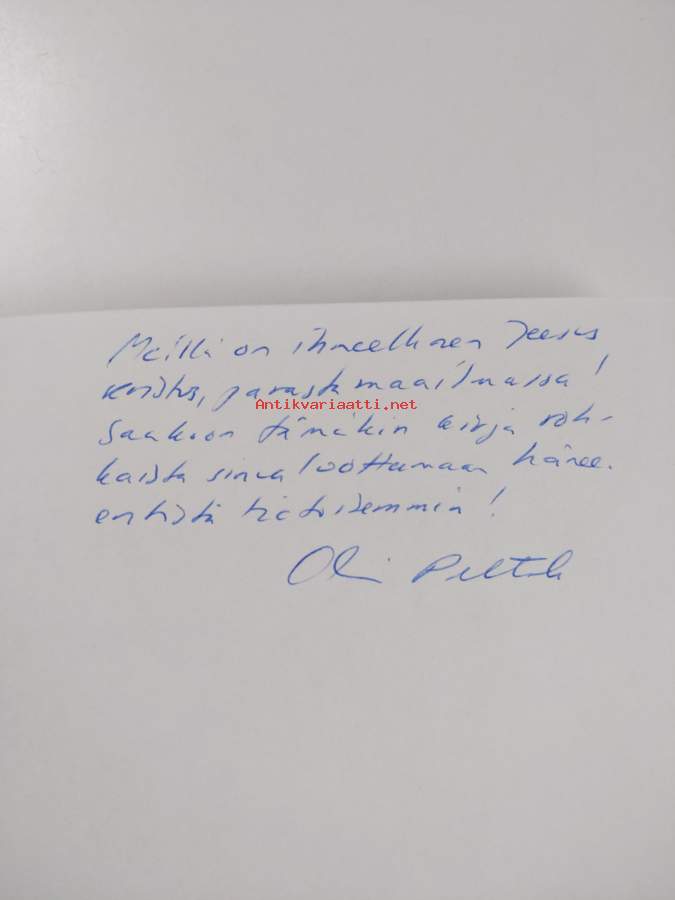 Meillä on ihmeellinen Jeesus
Kristus, parasta maailmassa!
Antikvariaatti.net
Saakoon tämäkin kirja roh-
kaista sinua luottamaan häneen
entistä tietoisemmin!
Olli Peltola